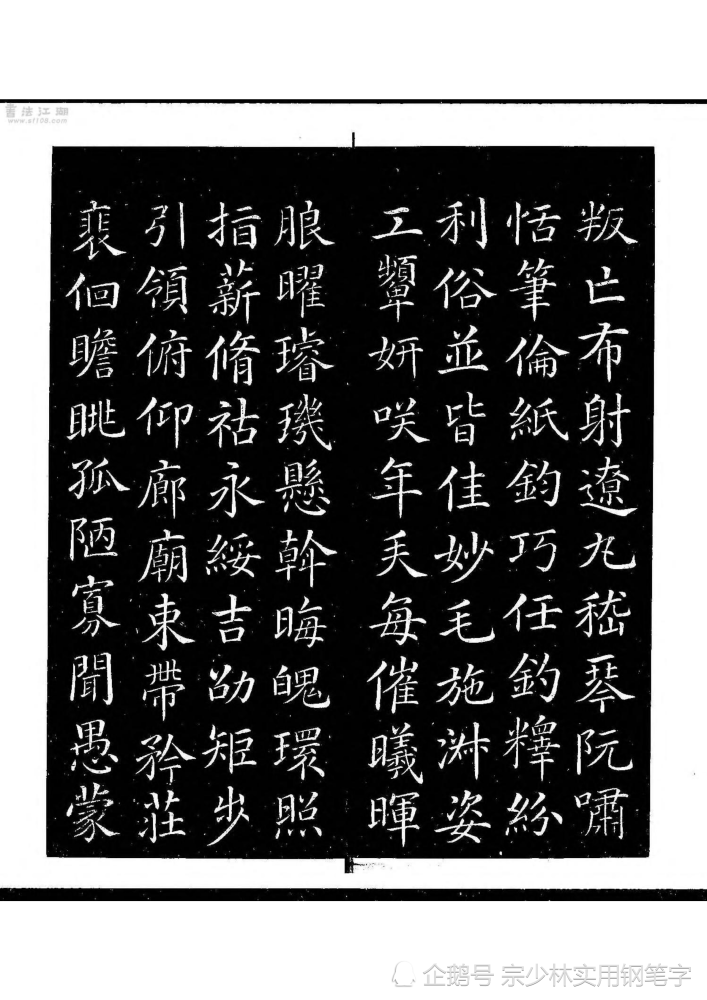 書法江湖
www.sf108.com
叛亡布射遼丸嵇琴阮嘯
恬筆倫紙鈞巧任釣釋紛
利俗並皆佳妙毛施淑姿
工顰妍咲年矢每催曦暉
朖曜璿璣懸斡晦魄環照
指薪脩祜永綏吉劭矩步
引領俯仰廊廟束帶矜莊
裴佪瞻眺孤陋寡聞愚蒙
企鹅号 宗少林实用钢笔字